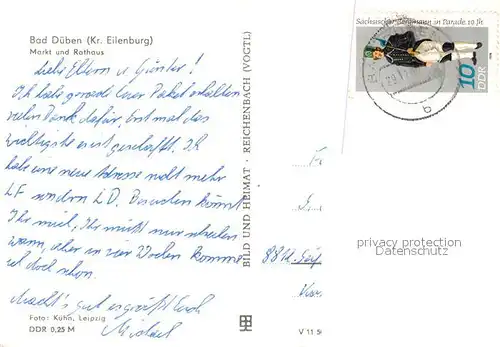 Bad Düben (Kr. Eilenburg)
Markt und Rathaus
Liebe Eltern u. Günter!
Ich habe gerade Euer Paket erhalten
vielen Dank dafür, erst mal das
wichtigste ist geschafft. Ich
habe eine neue Adresse nicht mehr
LF sondern LD. Besuchen könnt
Ihr mich, Ihr müßt nur schreiben
wann, aber in vier Wochen komme
ich doch schon.
Macht's gut es grüßt Euch
Michael
Foto: Kühn, Leipzig
DDR 0,25 M
BILD UND HEIMAT · REICHENBACH (VOGTL)
V 11 50
Sächsischer Bergmann in Parade, 19. Jh.
10
DDR
privacy protection
Datenschutz